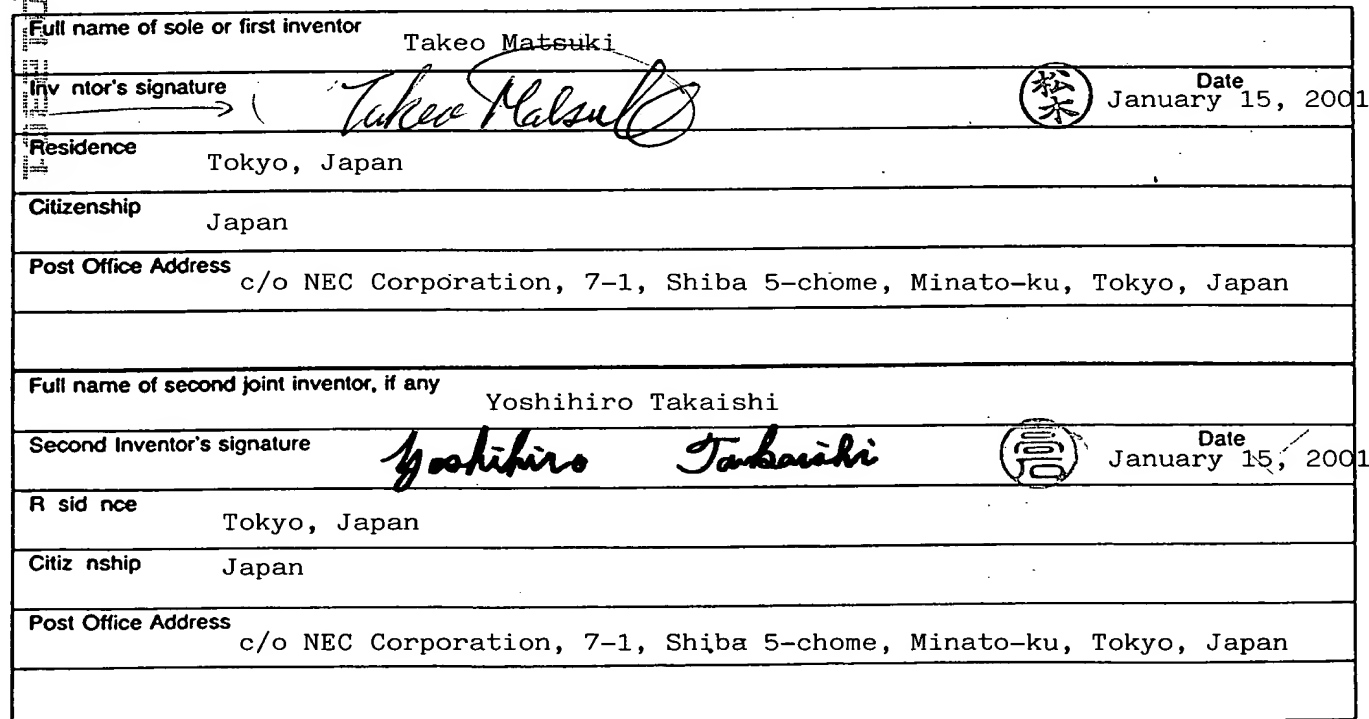 Full name of sole or first inventor
Takeo Matsuki
Inv ntor's signature
Takeo Matsuki
松木
Date
January 15, 2001
Residence
Tokyo, Japan
Citizenship
Japan
Post Office Address
c/o NEC Corporation, 7-1, Shiba 5-chome, Minato-ku, Tokyo, Japan
Full name of second joint inventor, if any
Yoshihiro Takaishi
Second Inventor's signature
Yoshihiro Takaishi
高石
Date
January 15, 2001
R sid nce
Tokyo, Japan
Citiz nship
Japan
Post Office Address
c/o NEC Corporation, 7-1, Shiba 5-chome, Minato-ku, Tokyo, Japan